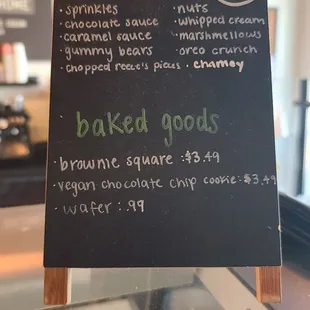 · sprinkles · nuts
· chocolate sauce · whipped cream
· caramel sauce · marshmellows
· gummy bears · oreo crunch
· chopped reece's pieces · chamoy
baked goods
· brownie square : $3.49
· vegan chocolate chip cookie : $3.49
· wafer : .99